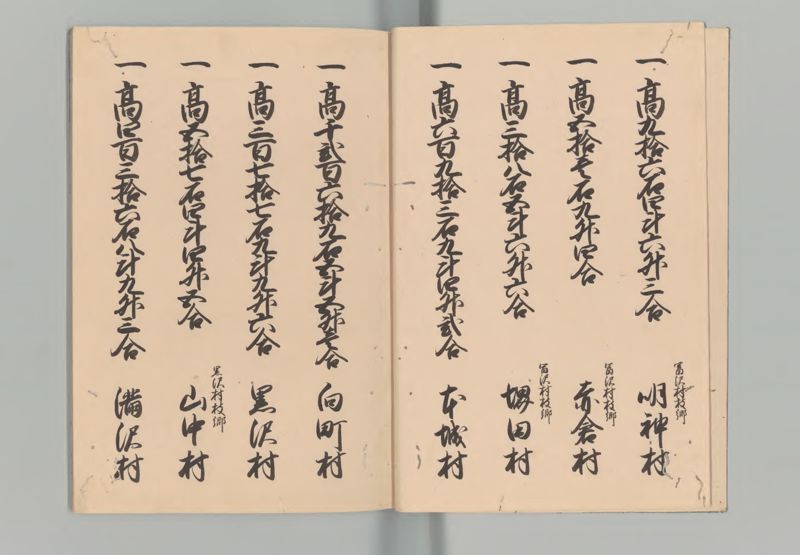 一高九拾六石四斗六升三合
冨沢村枝郷
明神村
一高五拾壱石九升四合
冨沢村枝郷
赤倉村
一高三拾八石五斗六升六合
冨沢村枝郷
堺田村
一高六百九拾三石九斗四升弐合 本城村
一高千弐百六拾九石五斗五升壱合 向町村
一高三百七拾七石九斗九升六合 黒沢村
一高五拾七石四斗四升五合
黒沢村枝郷
山中村
一高四百三拾六石八斗九升三合 満沢村